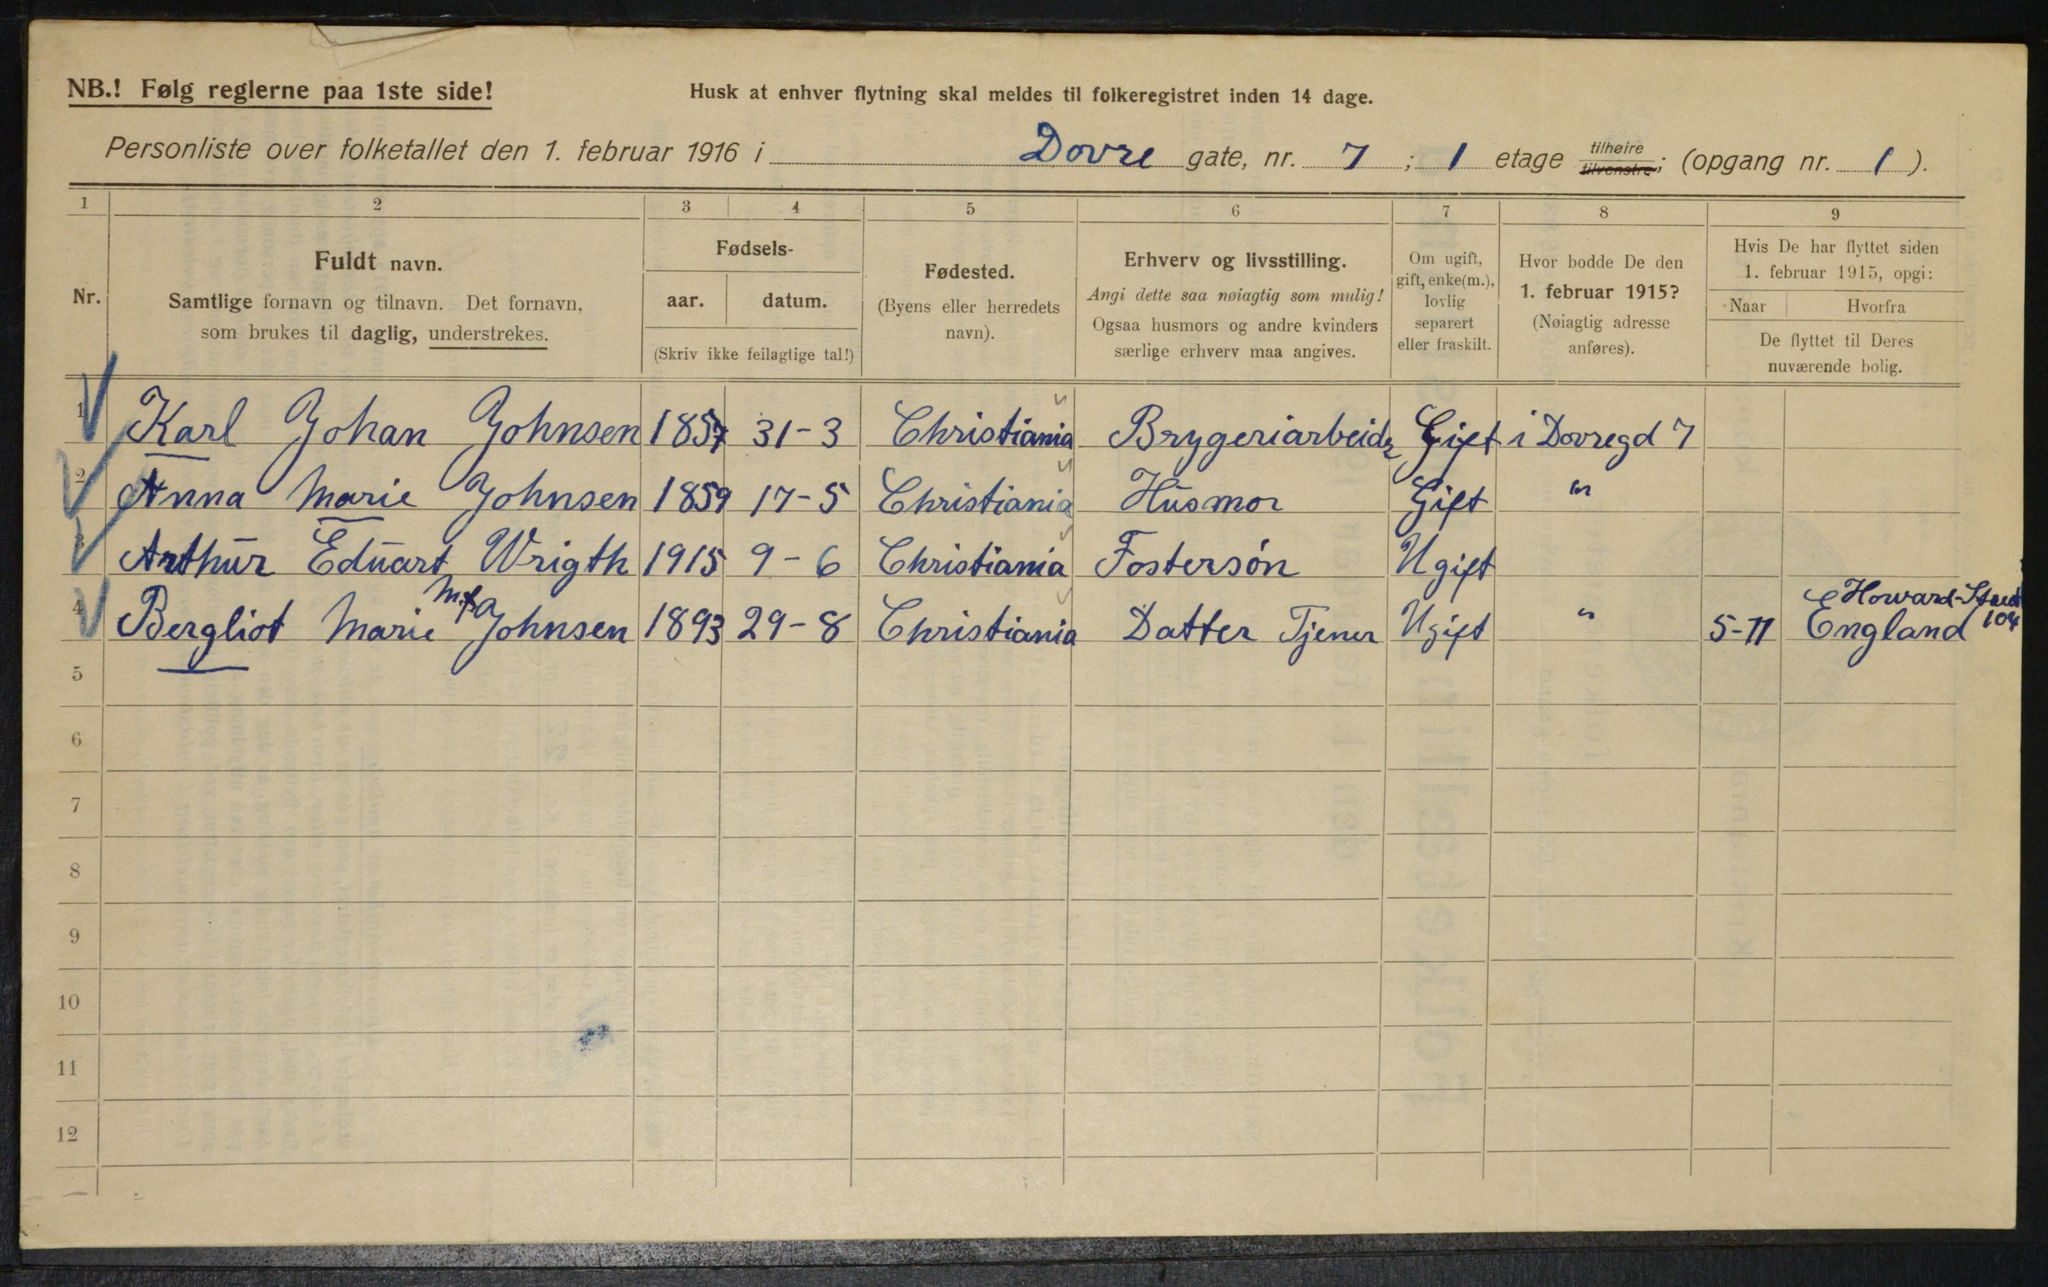 NB.! Følg reglerne paa 1ste side!
Husk at enhver flytning skal meldes til folkeregistret inden 14 dage.
Personliste over folketallet den 1. februar 1916 i Dovre gate, nr. 7 ; 1 etage tilhøire tilvenstre; (opgang nr. 1 ).
1 2 3 4 5 6 7 8 9
Nr.
Fuldt navn.
Samtlige fornavn og tilnavn. Det fornavn,
som brukes til daglig, understrekes.
Fødsels-
aar. datum.
(Skriv ikke feilagtige tal!)
Fødested.
(Byens eller herredets
navn).
Erhverv og livsstilling.
Angi dette saa nøiagtig som mulig!
Ogsaa husmors og andre kvinders
særlige erhverv maa angives.
Om ugift,
gift, enke(m.),
lovlig
separert
eller fraskilt.
Hvor bodde De den
1. februar 1915?
(Nøiagtig adresse
anføres).
Hvis De har flyttet siden
1. februar 1915, opgi:
Naar Hvorfra
De flyttet til Deres
nuværende bolig.
1 Karl Johan Johnsen 1857 31-3 Christiania Brygeriarbeider Gift i Dovregd 7
2 Anna Marie Johnsen 1859 17-5 Christiania Husmor Gift "
3 Arthur Eduart Wrigth 1915 9-6 Christiania Fostersøn Ugift
4 Bergliot Marie Johnsen 1893 29-8 Christiania Datter Tjener Ugift " 5-11 Howard-Street 104
England
5
6
7
8
9
10
11
12